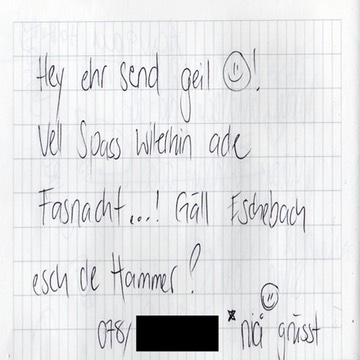 Hey ehr send geil ☺!
Vell Spass witerhin ade
Fasnacht...! Gäll Eschebach
esch de Hammer!
078/ *nici grüsst